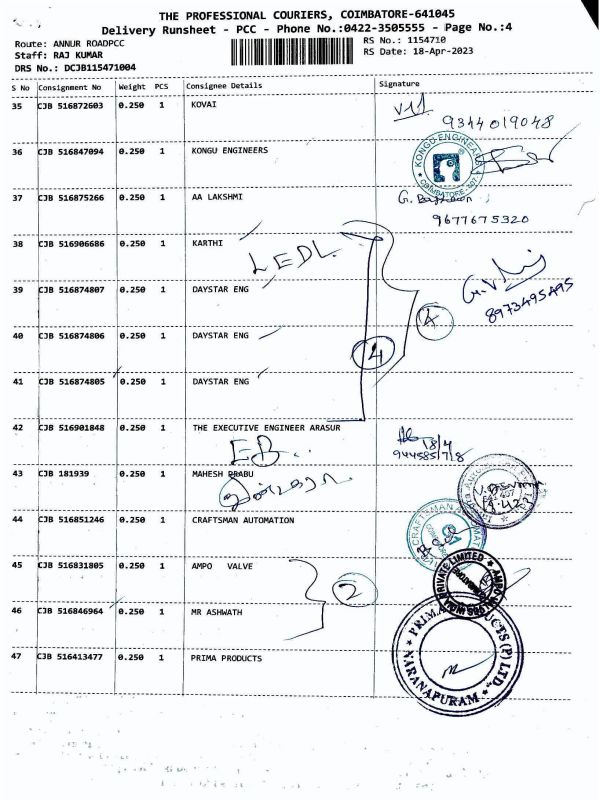 THE PROFESSIONAL COURIERS, COIMBATORE-641045
Delivery Runsheet - PCC - Phone No.:0422-3505555 - Page No.:4
Route: ANNUR ROADPCC
RS No.: 1154710
Staff: RAJ KUMAR
RS Date: 18-Apr-2023
DRS No.: DCJB115471004
S No Consignment No Weight PCS Consignee Details Signature
35 CJB 516872603 0.250 1 KOVAI
9344019048
36 CJB 516847094 0.250 1 KONGU ENGINEERS
KONGU ENGINEERS
COIMBATORE
37 CJB 516875266 0.250 1 AA LAKSHMI
9677675320
38 CJB 516906686 0.250 1 KARTHI
LEDL
39 CJB 516874807 0.250 1 DAYSTAR ENG
8973495495
4
40 CJB 516874806 0.250 1 DAYSTAR ENG
4
41 CJB 516874805 0.250 1 DAYSTAR ENG
42 CJB 516901848 0.250 1 THE EXECUTIVE ENGINEER ARASUR
18/4
EB
43 CJB 181939 0.250 1 MAHESH PRABU
44 CJB 516851246 0.250 1 CRAFTSMAN AUTOMATION
45 CJB 516831805 0.250 1 AMPO VALVE
2
PRIVATE LIMITED
46 CJB 516846964 0.250 1 MR ASHWATH
47 CJB 516413477 0.250 1 PRIMA PRODUCTS
PRIMA PRODUCTS (P) LTD.
NARANAPURAM